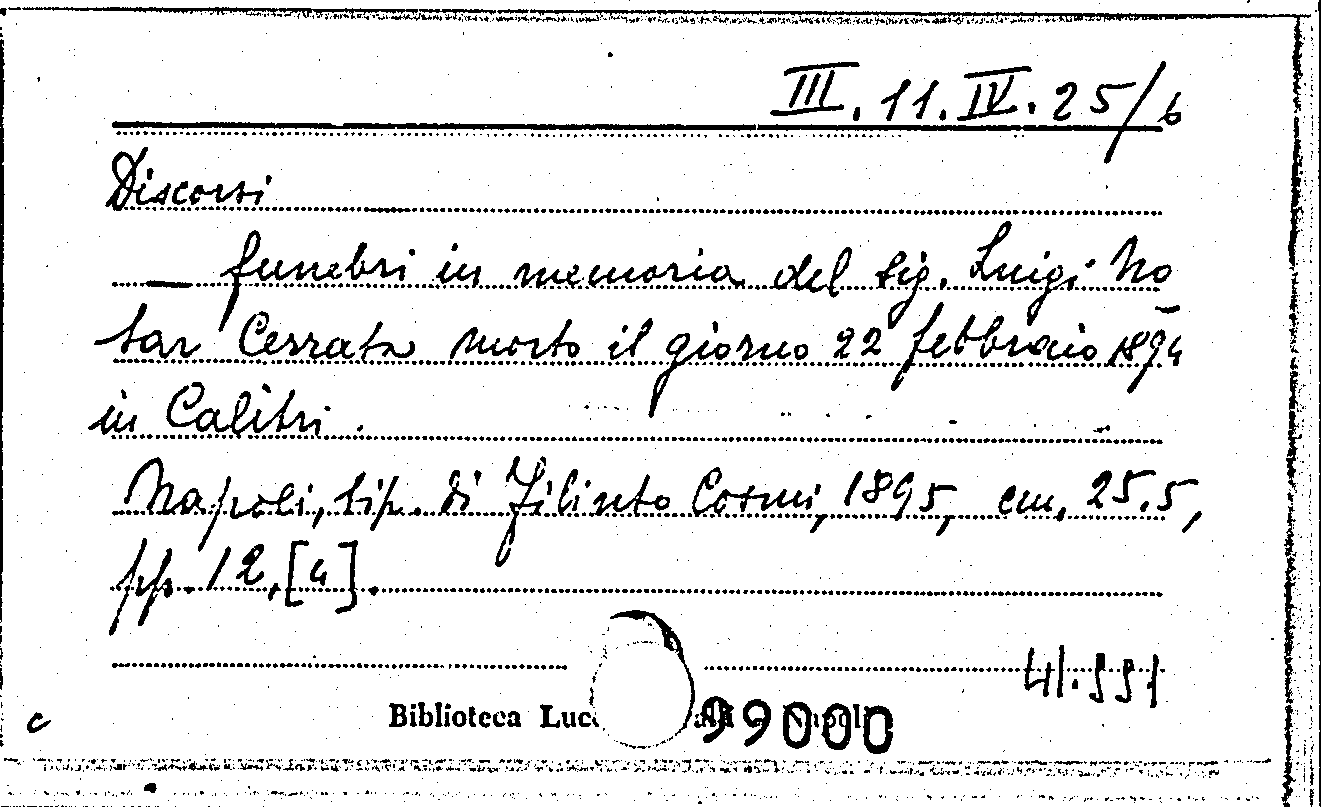 III.11.IV.25/6
Discorsi
— funebri in memoria del sig. Luigi No-
tar Cerrata morto il giorno 22 febbraio 1894
in Calitri.
Napoli, tip. di Filinto Cosmi, 1895, cm. 25.5,
pp. 12, [4].
41.991
Biblioteca
c 99000